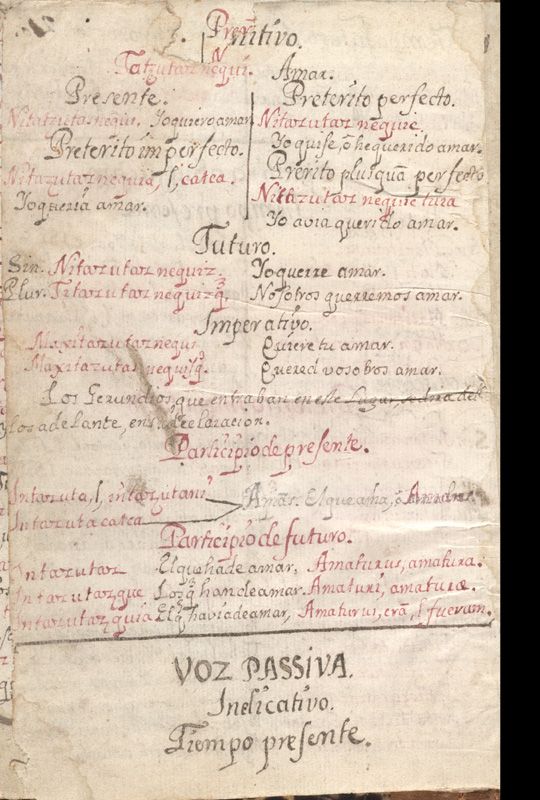 nitivo.
Tatzutaz nequi. Amar.
Presente. Preterito perfecto.
Nitatzutaz nequi. Yo quiero amar Nitazutaz nequie
Yo quise, ò he querido amar.
Preterito imperfecto. Prerito plusquã perfecto
Nitazutaz nequia, l, catca. Nitazutaz nequietuia
Yo queria amar. Yo avia querido amar.
Futuro.
Sin. Nitazutaz nequiz. Yo querre amar.
Plur. Titazutaz nequizq̃. Nosotros querremos amar.
Imperativo.
Maxitazutaz nequi Quiere tu amar.
Maxitazutaz nequisq̃. Quered vosotros amar.
Los Gerundios, que entraban en este Lugar,
los adelante, en su declaracion.
Participio de presente.
Intazuta, l, intazutani Amãs. El que ama, ò
Intazuta catca
Participio de futuro.
Intazutaz El que ha de amar, Amaturus, amatura.
Intazutazque Los q̃ han de amar. Amaturi, amaturæ.
Intazutazquia El q̃ havia de amar, Amaturus, erã, l fueram.
VOZ PASSIVA.
Indicativo.
Tiempo presente.